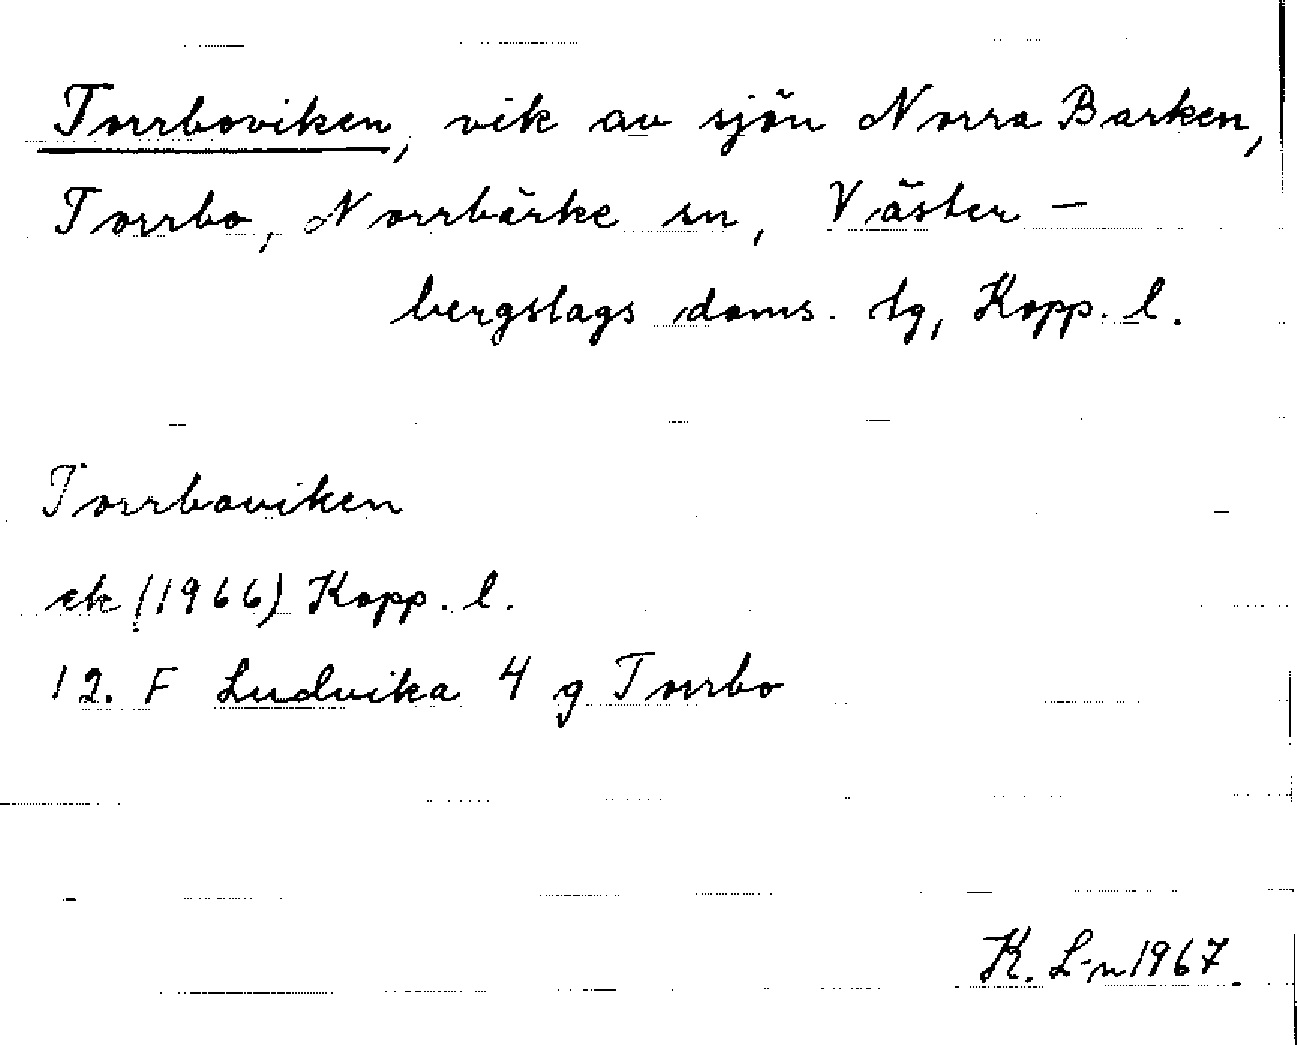 Torrboviken, vik av sjön Norra Barken,
Torrbo, Norrbärke sn, Väster-
bergslags doms. tg, Kopp. l.
Torrboviken
ek (1966) Kopp. l.
12. F Ludvika 4 g Torrbo
K. L-n 1967.